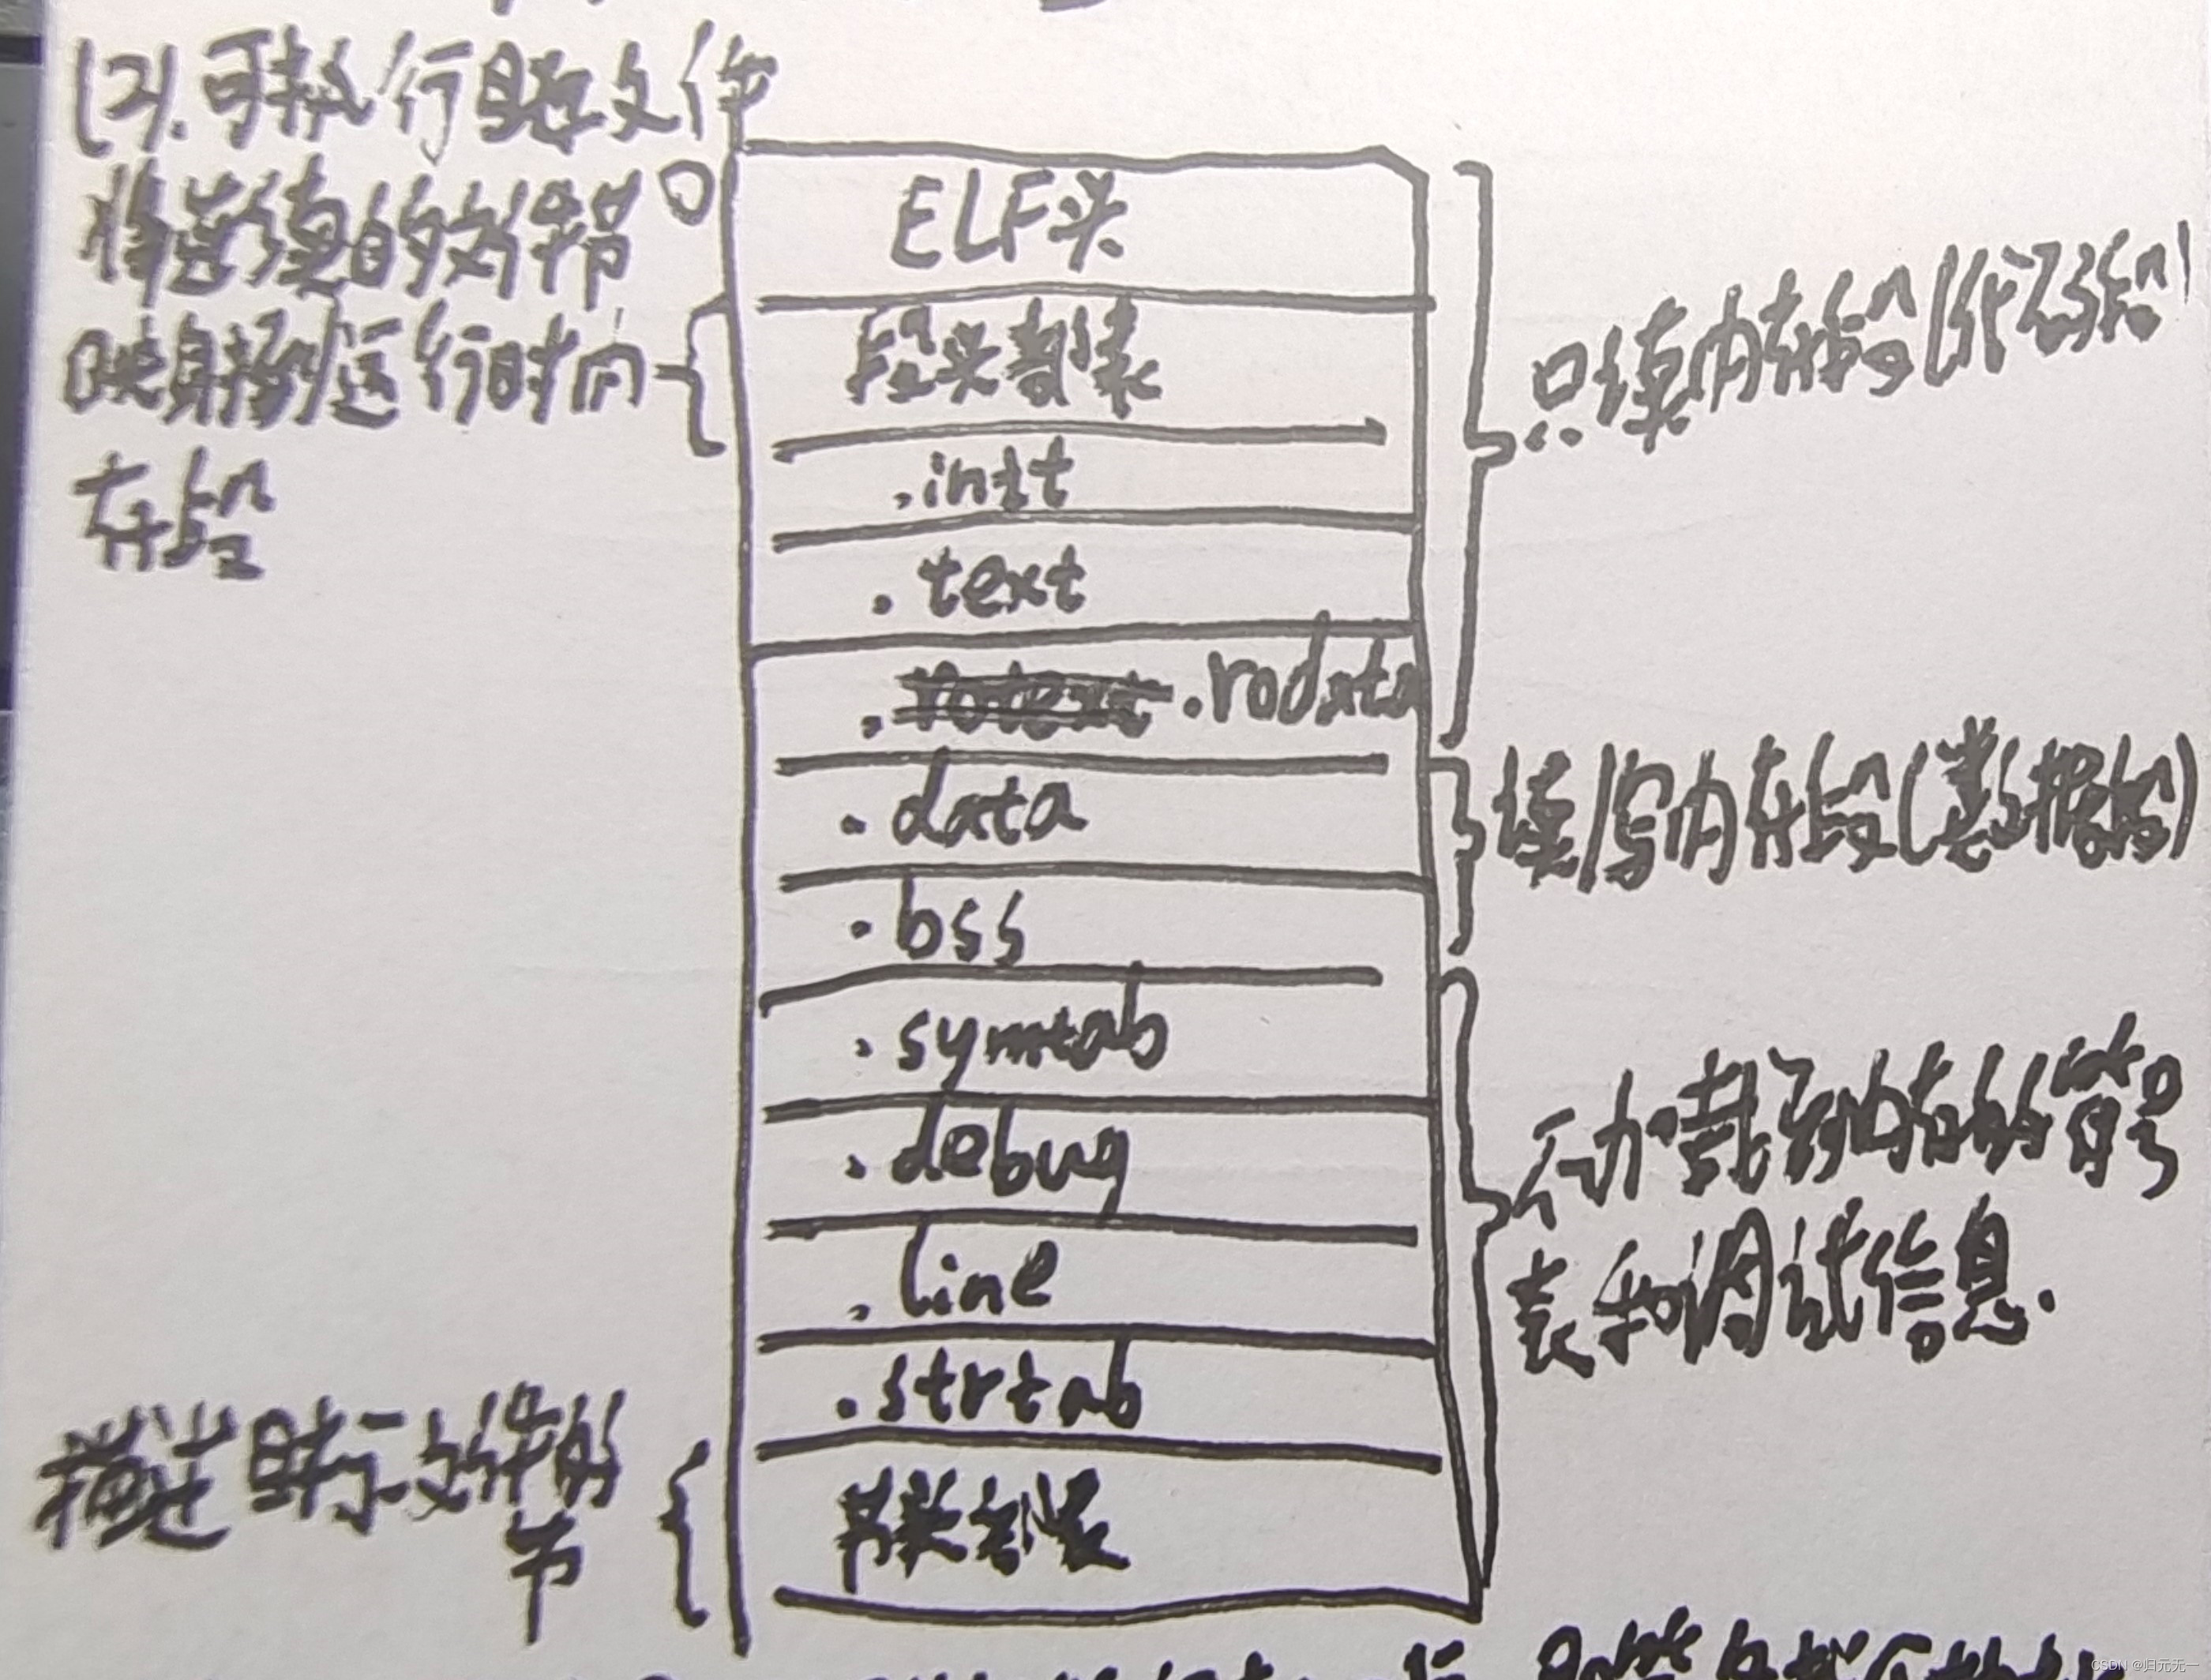 (2).可执行目标文件
将连续的文件节
映射到运行时内
存段
0
ELF头
段头部表
.init
.text
.rodata
.data
.bss
.symtab
.debug
.line
.strtab
节头部表
只读内存段(代码段)
读/写内存段(数据段)
不加载到内存的符号
表和调试信息.
描述目标文件的
节
CSDN @归元无一